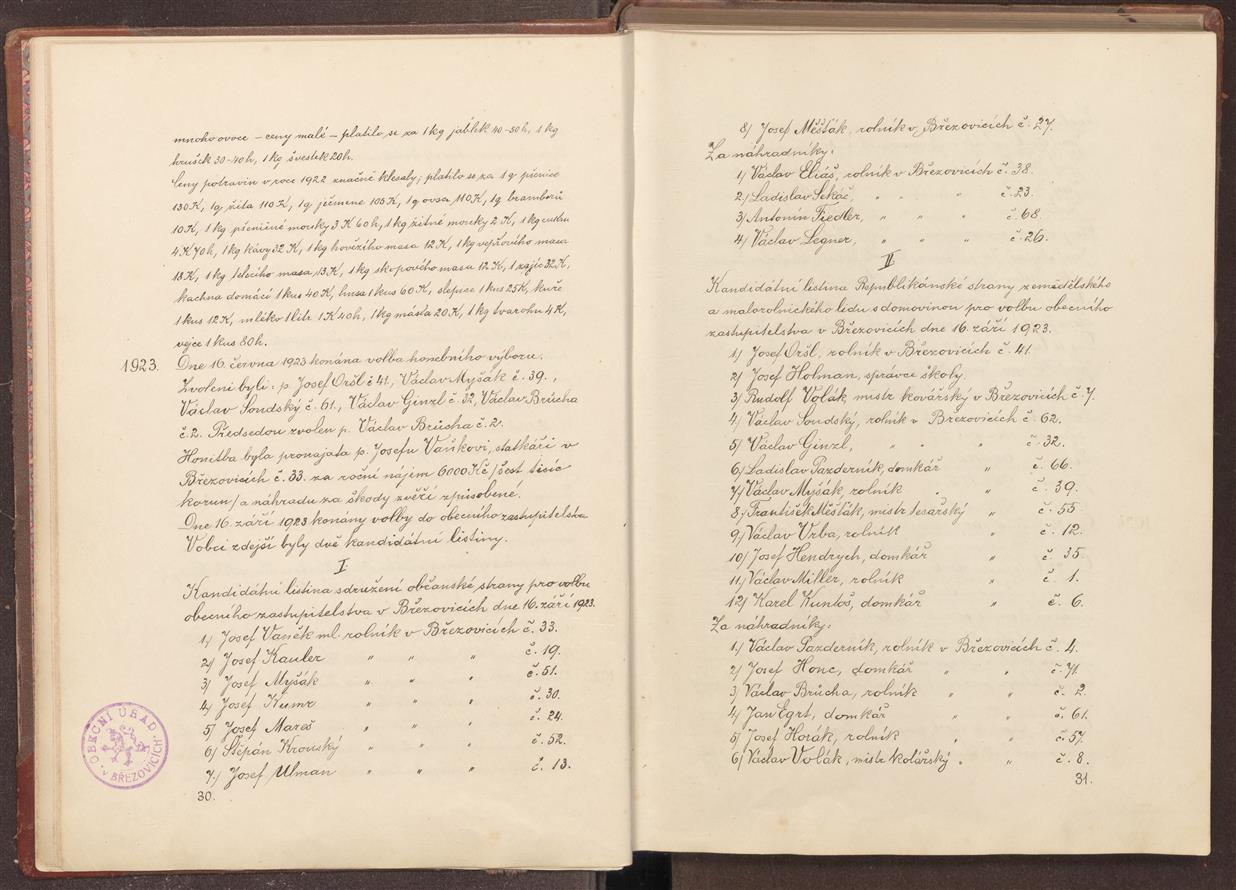 mnoho ovoce – ceny malé – platilo se za 1 kg jablek 40-50 h, 1 kg
hrušek 30-40 h, 1 kg švestek 20 h.
Ceny potravin v roce 1922 značně klesaly; platilo se za 1 q pšenice
130 K, 1 q žita 110 K, 1 q ječmene 105 K, 1 q ovsa 110 K, 1 q bramborů
10 K, 1 kg pšeničné mouky 3 K 60 h, 1 kg žitné mouky 2 K, 1 kg cukru
4 K 70 h, 1 kg kávy 32 K, 1 kg hovězího masa 12 K, 1 kg vepřového masa
18 K, 1 kg telecího masa 13 K, 1 kg skopového masa 12 K, 1 zajíc 32 K,
kachna domácí 1 kus 40 K, husa 1 kus 60 K, slepice 1 kus 25 K, kuře
1 kus 12 K, mléko 1 litr 1 K 40 h, 1 kg másla 20 K, 1 kg tvarohu 4 K,
vejce 1 kus 80 h.
1923. Dne 16. června 1923 konána volba honebního výboru.
Zvoleni byli: p. Josef Oršl č 41., Václav Myšák č. 39.,
Václav Soudský č. 61., Václav Ginzl č. 32, Václav Brůcha
č. 2. Předsedou zvolen p. Václav Brůcha č. 2.
Honitba byla pronajata p. Josefu Vaňkovi, statkáři v
Březovicích č. 33. za roční nájem 6000 Kč /šest tisíc
korun/ a náhradu za škody zvěří způsobené.
Dne 16. září 1923 konány volby do obecního zastupitelstva
V obci zdejší byly dvě kandidátní listiny.
I.
Kandidátní listina sdružení občanské strany pro volbu
obecního zastupitelstva v Březovicích dne 16. září 1923.
1/ Josef Vaněk ml. rolník v Březovicích č. 33.
2/ Josef Kauler " " " č. 19.
3/ Josef Myšák " " " č. 51.
4/ Josef Kumr " " " č. 30.
5/ Josef Mareš " " " č. 24.
6/ Štěpán Krouský " " " č. 52.
7/ Josef Ulman " " " č. 13.
OBECNÍ ÚŘAD
v BŘEZOVICÍCH
30.
8/ Josef Měšťák, rolník v Březovicích č. 27.
Za náhradníky:
1/ Václav Eliáš, rolník v Březovicích č. 38.
2/ Ladislav Sekáč, " " " č. 23.
3/ Antonín Fiedler, " " " č. 68.
4/ Václav Legner, " " " č. 26.
II.
Kandidátní listina Republikánské strany zemědělského
a malorolnického lidu s domovinou pro volbu obecního
zastupitelstva v Březovicích dne 16. září 1923.
1/ Josef Oršl, rolník v Březovicích č. 41.
2/ Josef Holman, správce školy,
3/ Rudolf Volák, mistr kovářský v Březovicích č. 7.
4/ Václav Soudský, rolník v Březovicích č. 62.
5/ Václav Ginzl, " " " č. 32.
6/ Ladislav Pazderník, domkář " č. 66.
7/ Václav Myšák, rolník " " č. 39.
8/ František Měšťák, mistr tesařský " č. 55.
9/ Václav Vrba, rolník " č. 12.
10/ Josef Hendrych, domkář " č. 35.
11/ Václav Miller, rolník " č. 1.
12/ Karel Kuntoš, domkář " č. 6.
Za náhradníky:
1/ Václav Pazderník, rolník v Březovicích č. 4.
2/ Josef Honc, domkář " " č. 71.
3/ Václav Brůcha, rolník " " č. 2.
4/ Jan Egrt, domkář " " č. 61.
5/ Josef Horák, rolník " " č. 57.
6/ Václav Volák, mistr kolářský " " č. 8.
31.